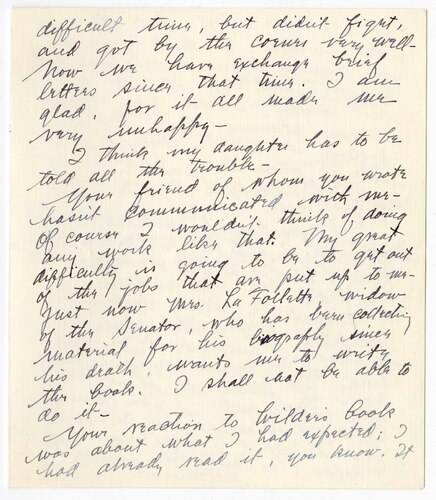 difficult time, but didn't fight,
and got by the corner very well-
Now we have exchange brief
letters since that time. I am
glad, for it all made me
very unhappy-
I think my daughter has to be
told all the trouble-
Your friend of whom you wrote
hasn't communicated with me-
Of course I wouldn't think of doing
any work like that. My great
difficulty is going to be to get out
of the jobs that are put up to me-
Just now Mrs. La Follette, widow
of the Senator, who has been collecting
material for his biography since
his death, wants me to write
the book. I shall not be able to
do it-
Your reaction to Wilder's book
was about what I had expected; I
had already read it, you know. It